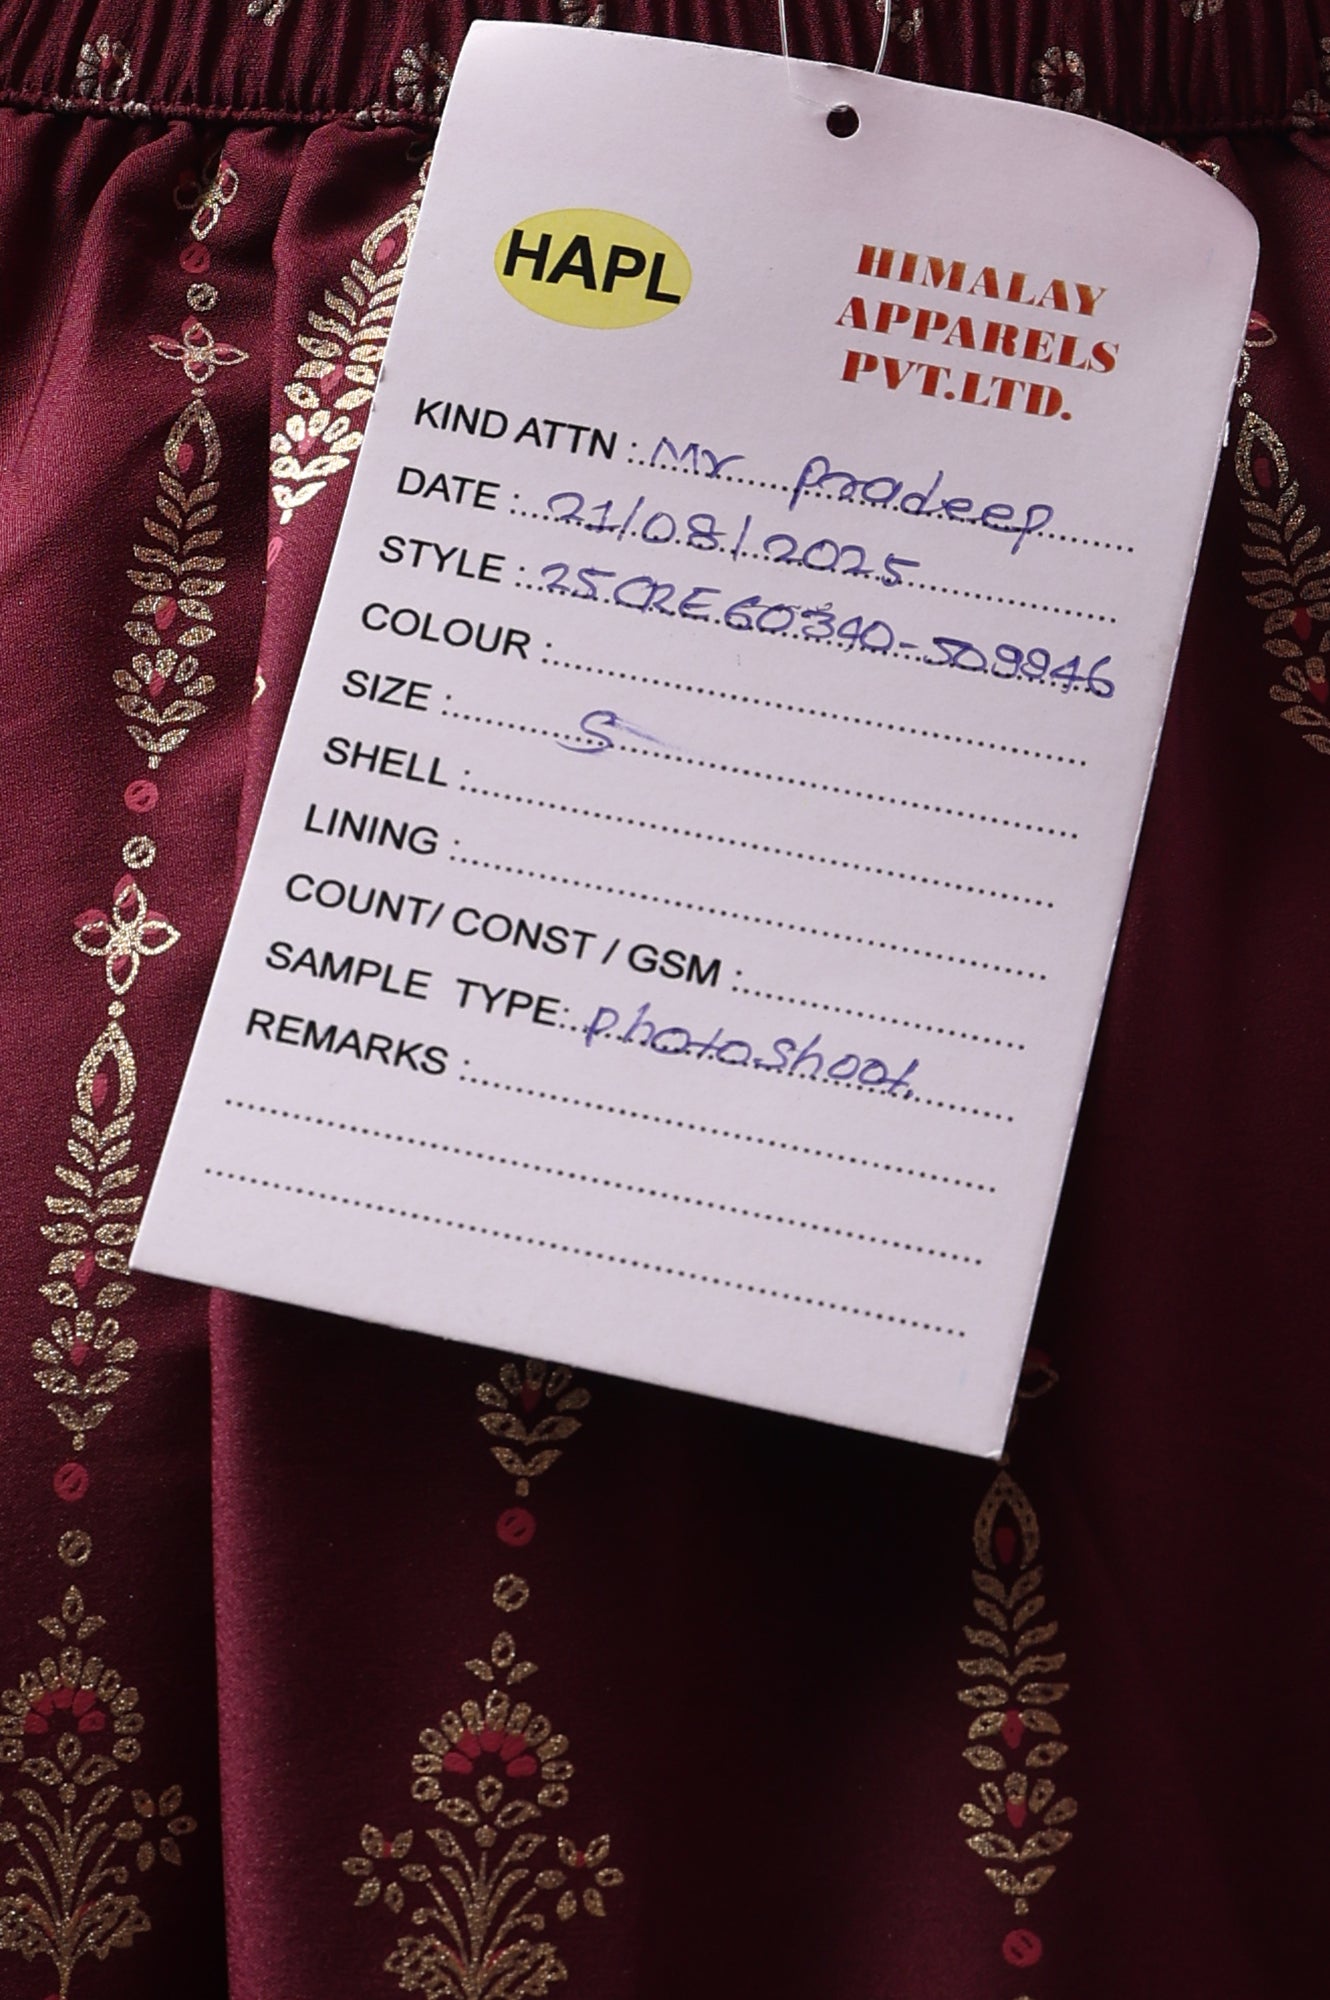 HAPL
HIMALAY
APPARELS
PVT.LTD.
KIND ATTN : Mr Pradeep
DATE : 21/08/2025
STYLE : 25CRE60340-509946
COLOUR :
SIZE : S
SHELL :
LINING :
COUNT/ CONST / GSM :
SAMPLE TYPE: photoshoot.
REMARKS :